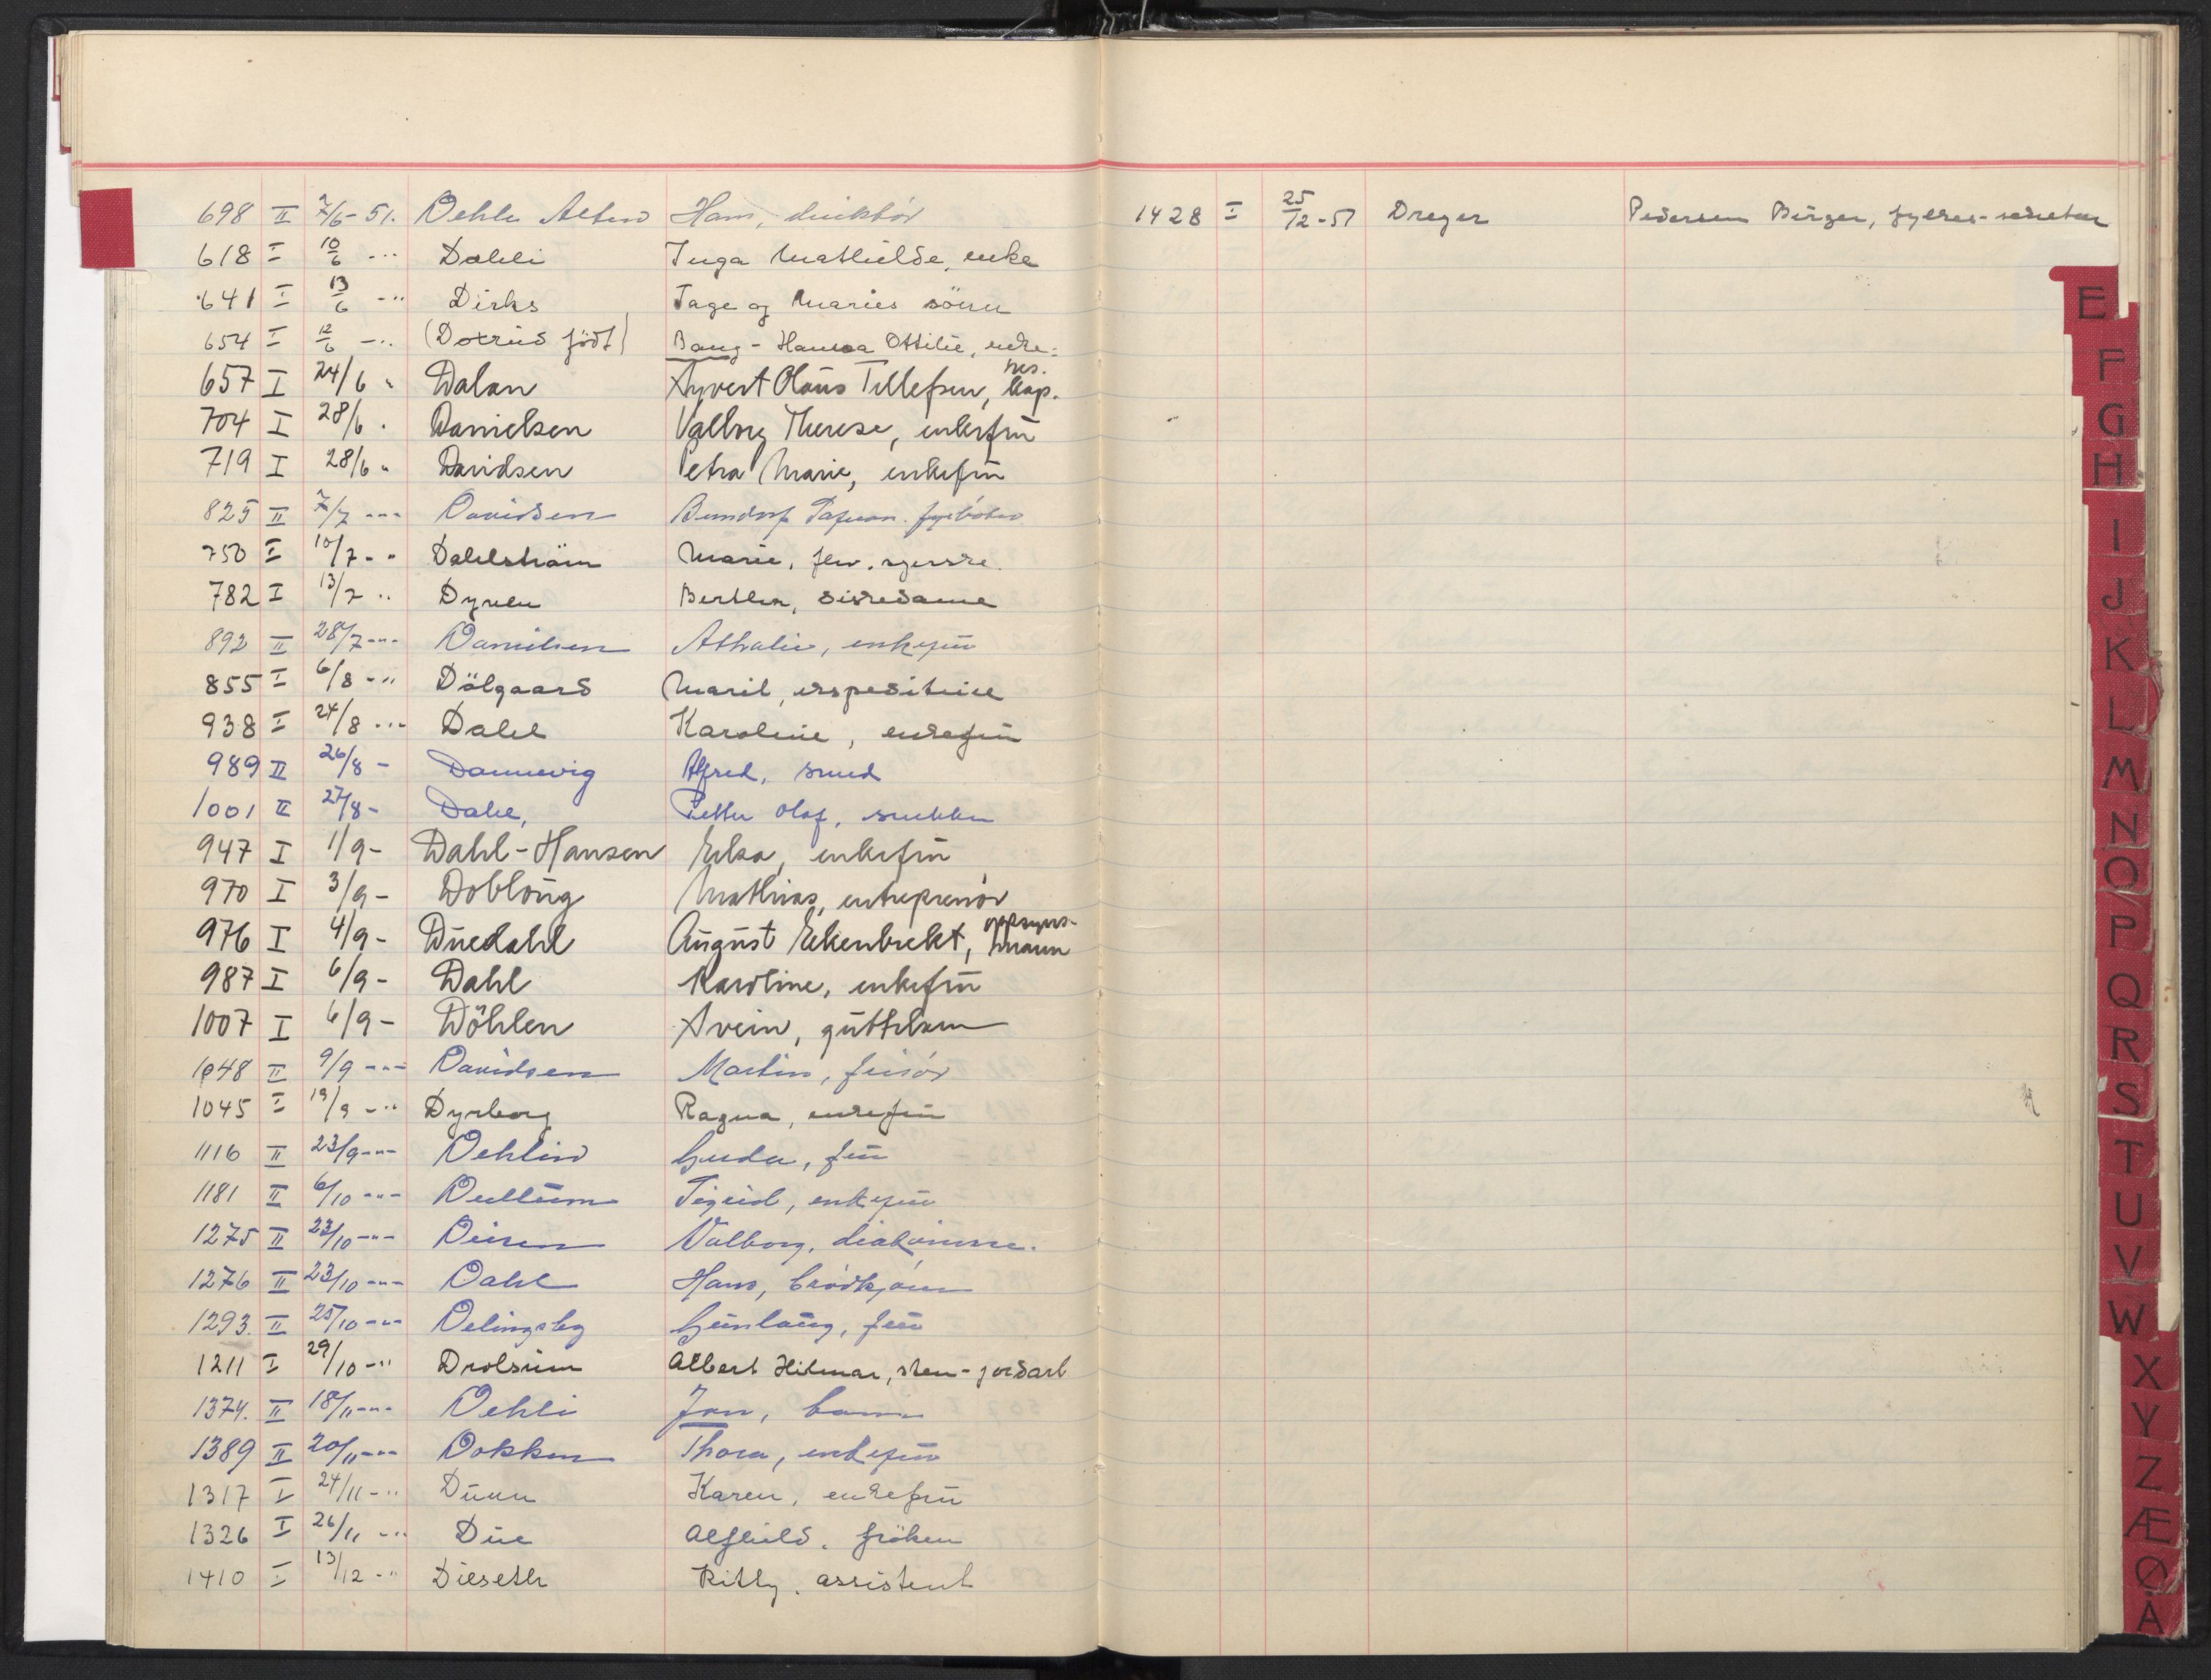 698 II 7/6-51. Dehli Hans, direktör
618 I 10/6 -"- Dahli Inga Mathilde, enke
641 I 13/6 -"- Dirks Tage og Maries sönn
654 I 12/6 -"- (Dotrud födt) Bang-Hansa Ottilie, enke
657 I 24/6 " Dalan Syvert Olaus Tellefsen, res. kap.
704 I 28/6 " Danielsen Valborg Therese, enkefru
719 I 28/6 " Davidsen Petra Marie, enkefru
825 II 7/7 -"- Davidsen fyrböter
750 I 10/7 -" Dahlström Marie, syerske
782 I 13/7 " Dyren Bertha, diskedame
892 II 28/7 -"- Danielsen Athalie, enkefru
855 I 6/8 -" Dölgaard Maril, ekspeditrise
938 I 24/8 -"- Dahl Karoline, enkefru
989 II 26/8 - Dannevig Alfred, smed
1001 II 27/8 - Dahl, Petter Olaf, snekker
947 I 1/9 - Dahl-Hansen Elsa, enkefru
970 I 3/9 - Dobloug Mathias, entreprenör
976 I 4/9 - Duedahl August Ekenbrekt, oppsyns-mann
987 I 6/9 - Dahl Karoline, enkefru
1007 I 6/9 - Döhlen Svein, guttebarn
1048 II 9/9 -"- Davidsen Martin, frisör
1045 I 19/9 -" Dyrborg Ragna, enkefru
1116 II 23/9 -"- Dehlin Gerda, fru
1181 II 6/10 -"- Sigrid, enkefru
1275 II 23/10 -"- Valborg, diakonisse.
1276 II 23/10 -"- Dahl Hans, brödkjörer
1293. II 25/10 -"- Delingsby Gunlaug, fru
1211 I 29/10 -" Drolsum Albert Hilmar, sten-jordarb
1374. II 18/11 -"- Dehli Jon, barn
1389 II 20/11 -"- Dokken Thora, enkefru
1317 I 24/11 -" Dunn Karen, enkefru
1326 I 26/11 -" Due Alfhild, fröken
1410 I 13/12 -" Dieseth Kitty, assistent
1428 I 25/12-51 Dreyer Pedersen Birger, fylkes-sekretær
E
F
G
H
I
J
K
L
M
N
O
P
Q
R
S
T
U
V
W
X
Y
Z
Æ
Ø
Å